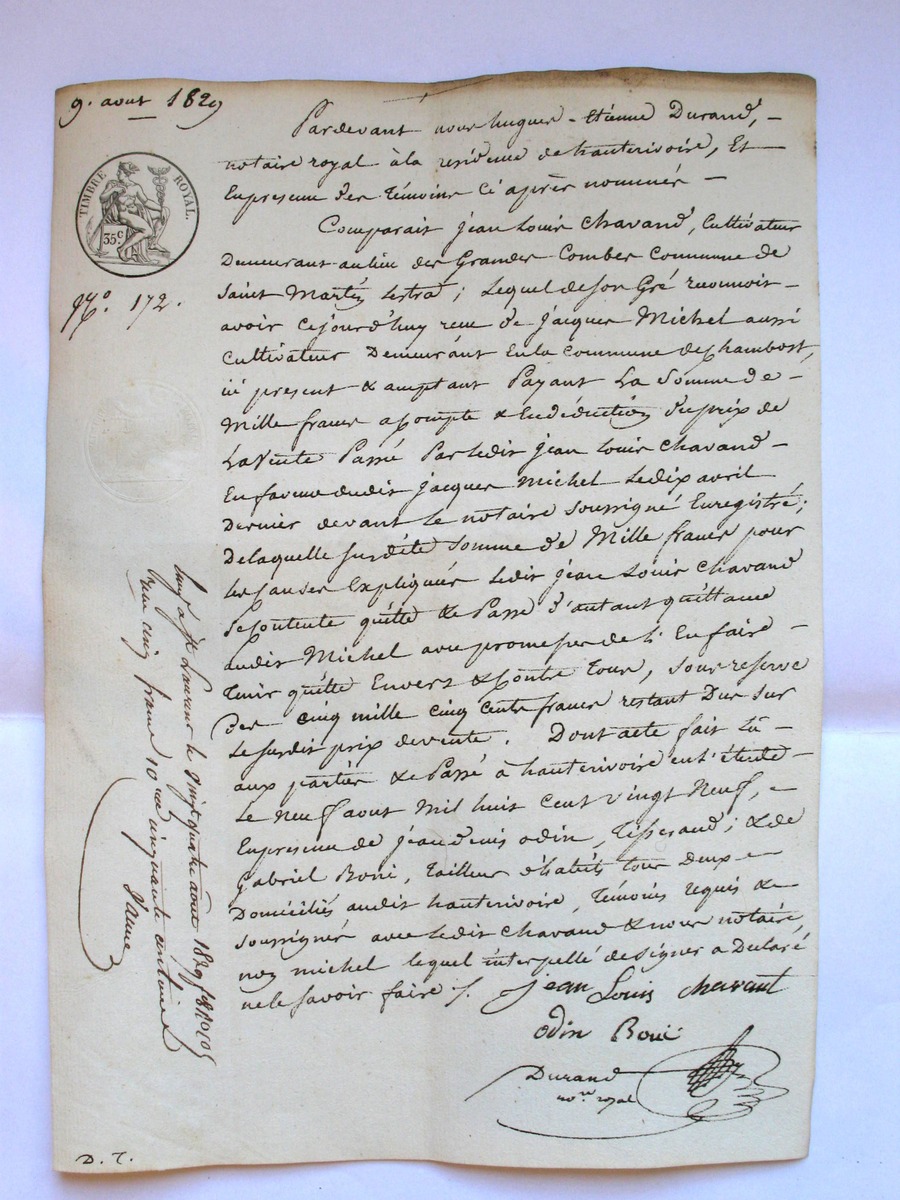 9. aout 1829
TIMBRE ROYAL.
35c
No. 172.
Pardevant nous hugues-Etienne Durand, -
notaire royal à la residence de hauterivoire, Et
En presence des témoins ci après nommés -
Comparait jean Louis Chavand, Cultivateur
Demeurant au lieu des Grandes Combes Commune de
Saint Martin lestra ; Lequel de son Gré reconnoit -
avoir Cejourd'huy reçu de jacques Michel aussi
Cultivateur Demeurant En la commune de Chambost,
ici present & acceptant Payant La Somme de -
Mille francs a Compte & En déduction du prix de
La Vente Passé Par ledit jean Louis Chavand -
En faveur dudit jacques Michel Le dix avril
Dernier devant le notaire soussigné Enregistré ;
De laquelle susdite somme de Mille francs pour
les causes Expliquées ledit jean Louis Chavand
Se contente quitte & Passe d'autant quittance
audit Michel avec promesse de l'En faire -
tenir quitte Envers & Contre tous, sous reserve
Des Cinq mille Cinq Cents francs restant Dus sur
Le susdit prix de vente. Dont acte fait Lû -
aux parties & Passé à hauterivoire en l'étude -
Le Neuf aout Mil huit Cent Vingt Neuf, -
En presence de jean denis odin, tisserand ; & de
Gabriel Boni, tailleur d'habits tous Deux -
Domiciliés audit hauterivoire, témoins requis &
soussignés avec ledit Chavand & nous notaire,
non michel lequel interpellé de signer a Déclaré
ne le savoir faire /.
jean Louis chavant
odin Boni
Durand
nore royal
St Laurent le vingt quatre aout 1829
cinq francs 10me cinquante centimes
D. T.